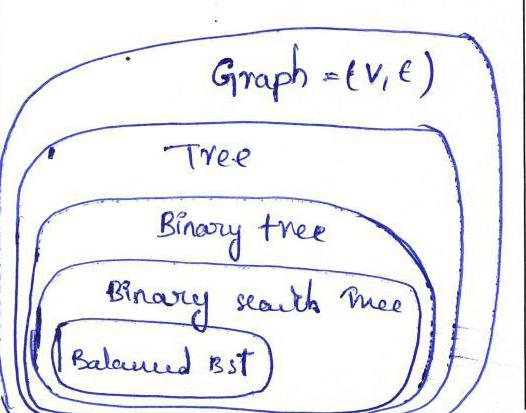 Graph = (V, E)
Tree
Binary tree
Binary search Tree
Balanced BST